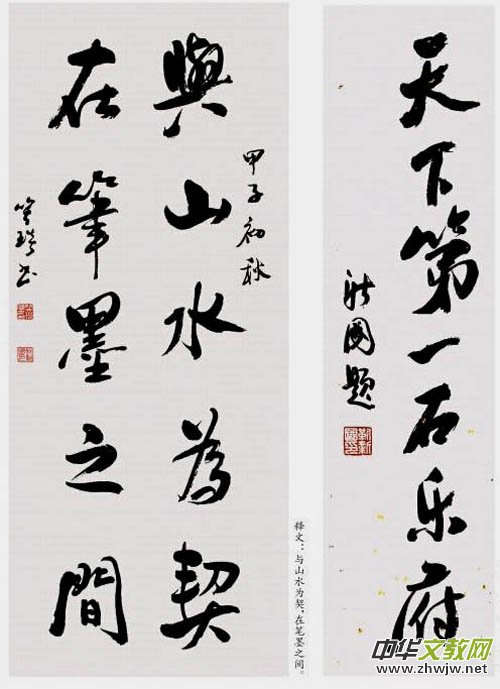 天下第一石乐府
新國题
释文：与山水为契，在笔墨之间。
與山水為契
甲子初秋
在筆墨之間
书
中华文教网
www.zhwjw.net